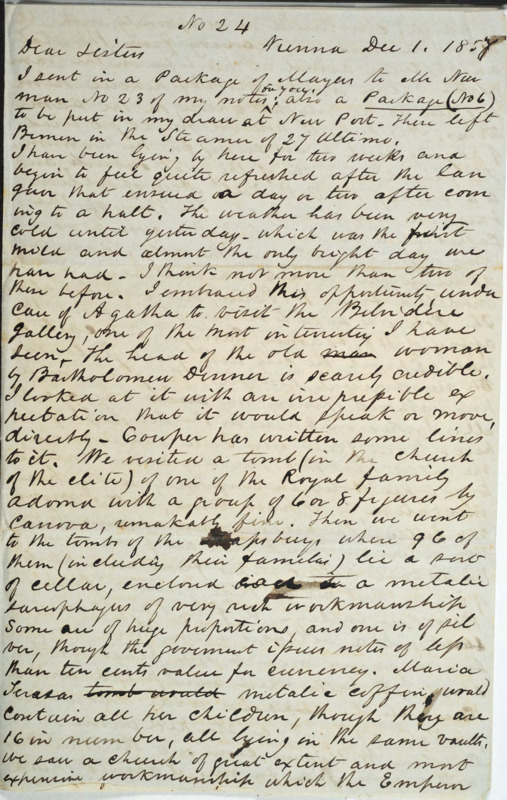 No 24
Dear Sisters Vienna Dec 1. 1857
I sent in a Package of Mayers to Mr New
man No 23 of my notes, ^for you^ also a Package (No 6)
to be put in my draw at New Port. These left
Bremen in the Steamer of 27 Ultimo.
I have been lying by here for two weeks and
begin to feel quite refreshed after the lan
guor that ensued a day or two after com
ing to a halt. The weather has been very
cold until yesterday - which was the first
mild and almost the only bright day we
have had - I think not more than two of
them before. I embraced this opportunity, under
care of Agatha to visit the Belvidere
Gallery, one of the most interesting I have
seen - The head of the old man woman
by Bartholomew Denner is scarcely credible.
I looked at it with an irrepressible ex
pectation that it would speak or move,
directly - Cowper has written some lines
to it. We visited a tomb (in the Church
of the elite) of one of the Royal family
adorned with a group of 6 or 8 figures by
Canova, remarkably fine. Then we went
to the tombs of the Hapsburgs where 96 of
them (including their families) lie a sort
of cellar, enclosed a metalic
sarcophagus of very rich workmanship
Some are of huge proportions, and one is of sil
ver, though the government issues notes of less
than ten cents value for currency. Maria
Terasas tomb would metalic coffin, would
contain all her children, though they are
16 in number, all lying in the same vault.
We saw a church of great extent and most
expensive workmanship which the Emperor